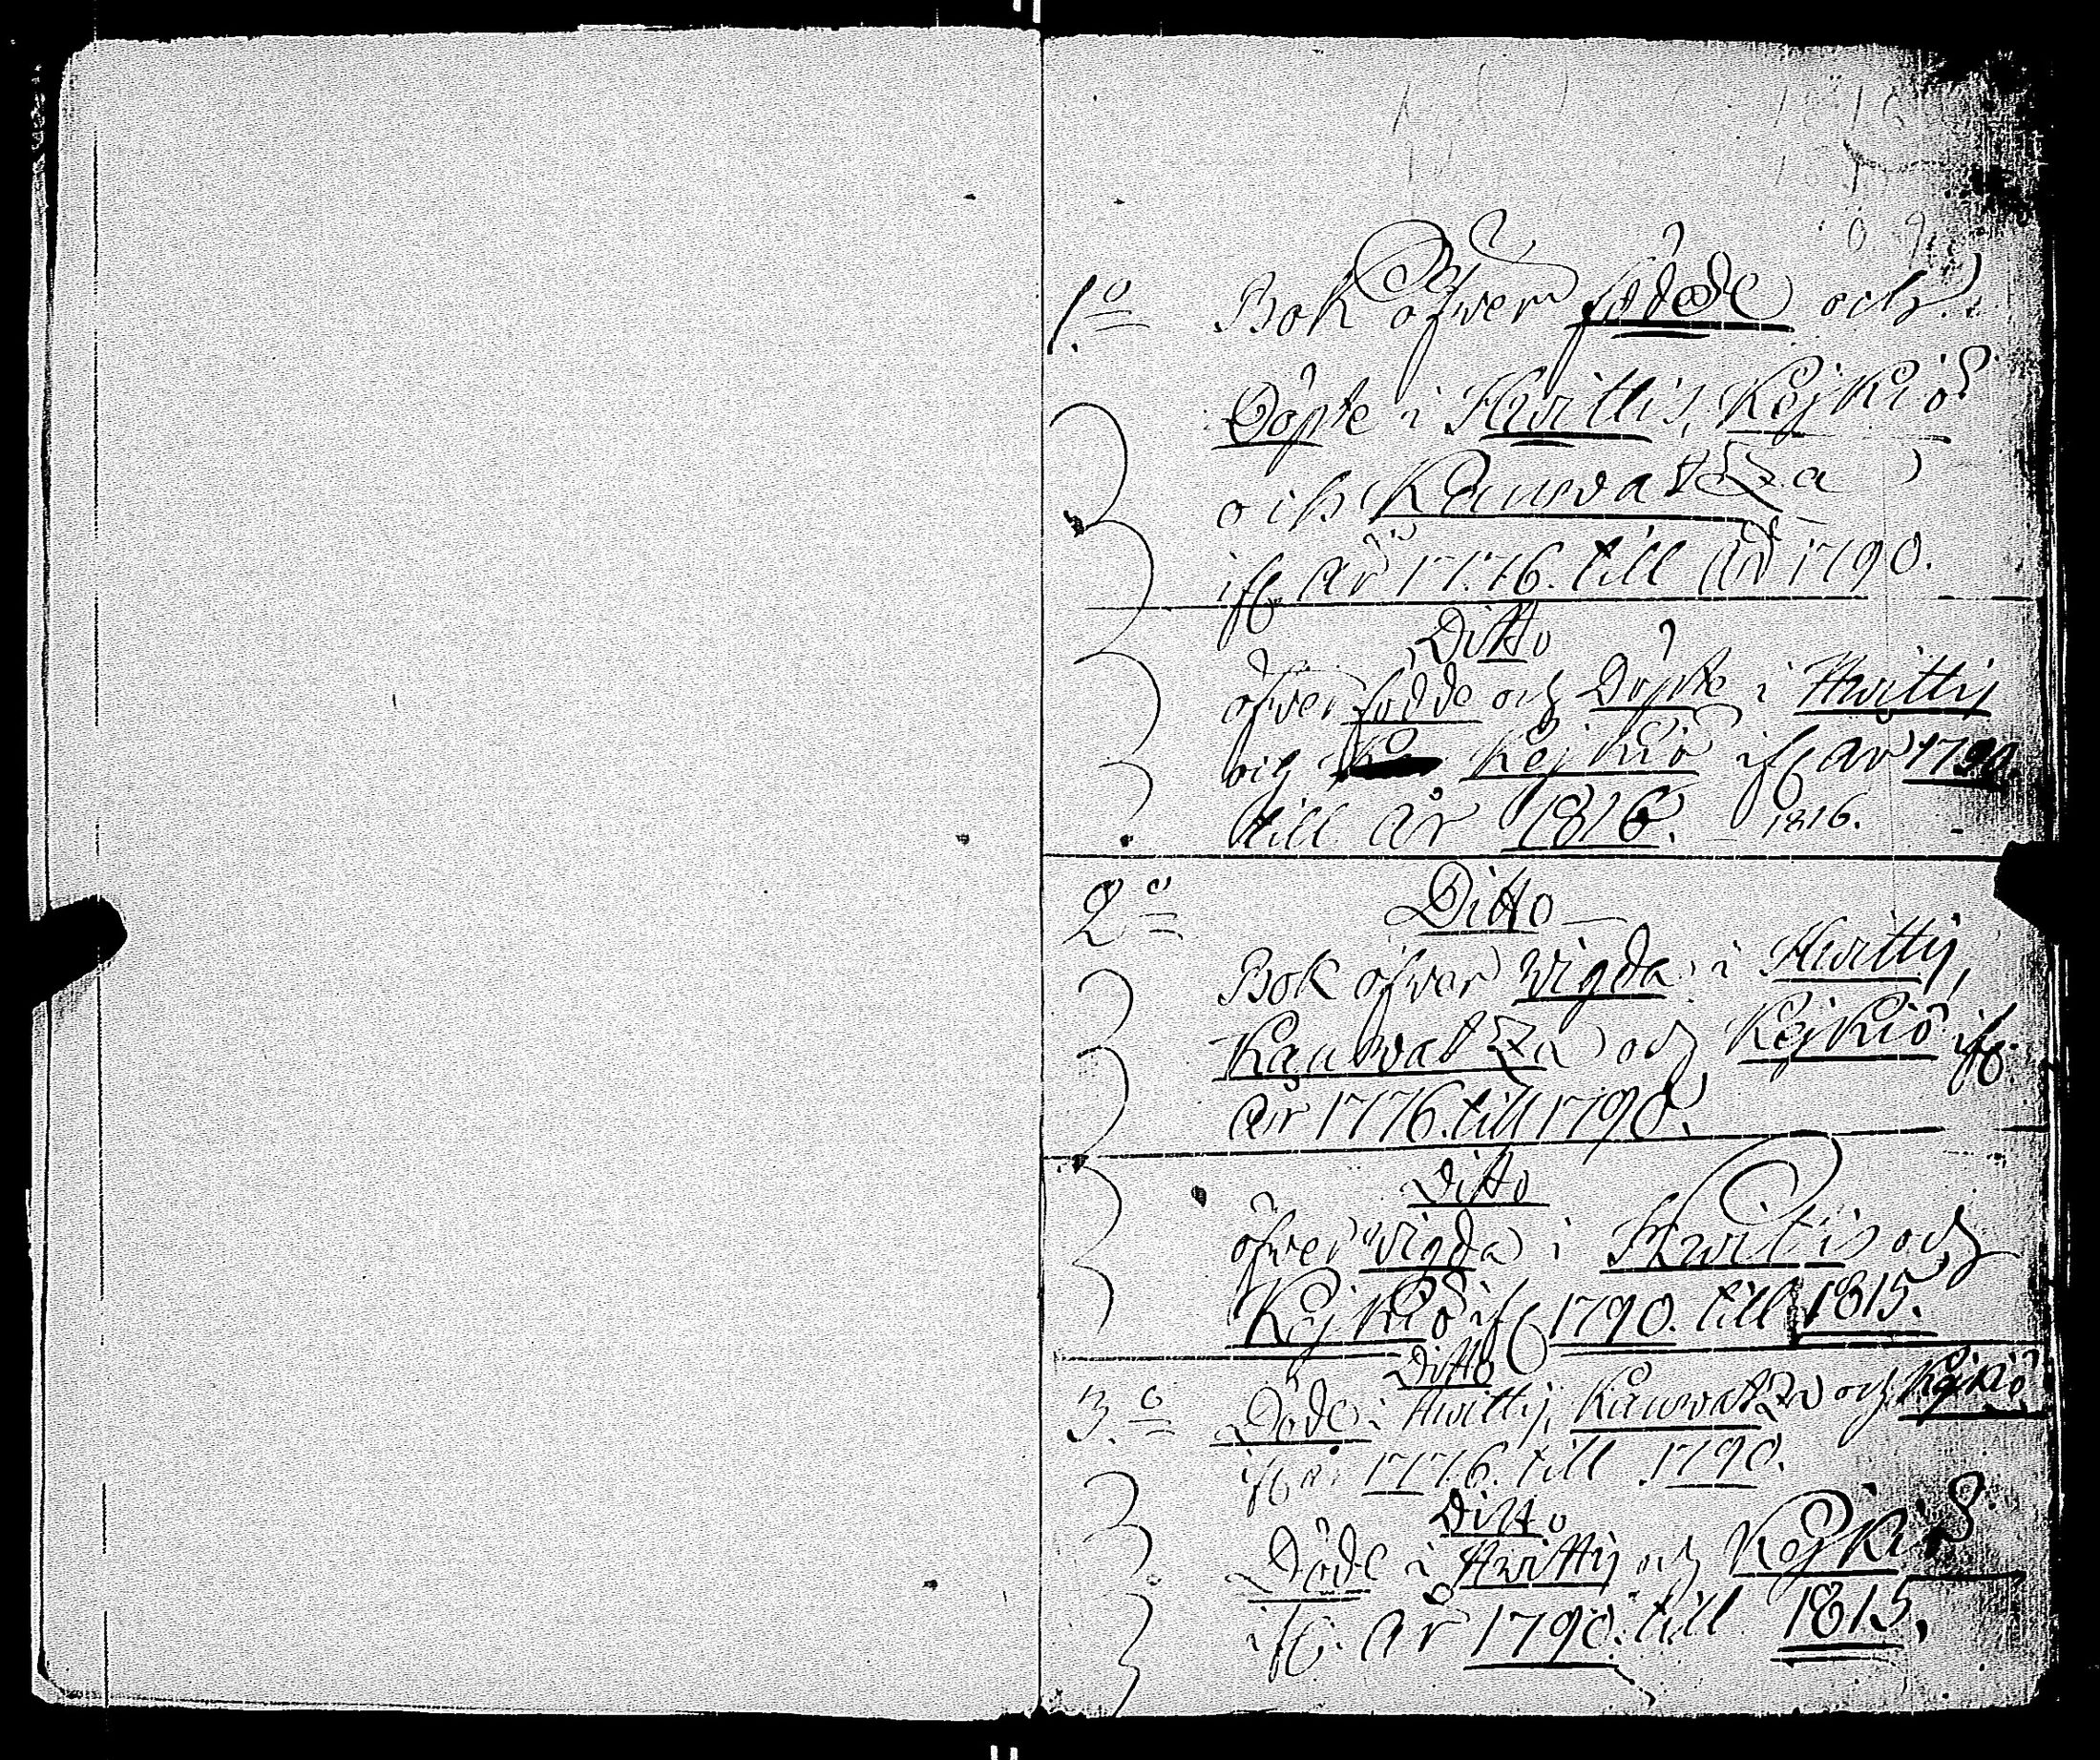 1:o Bok öfwer födde och
Döpte i Hwittis, Kejkiö
och Kauwatza
ifr. År 1776. till År 1790.
Ditto
öfwer födde och Döpte i Hwittis
och Kejkiö ifr År 1790.
till År 1816. 1816.
2:o Ditto
Bok öfwer Wigda i Hwittis,
Kauwatza och Kejkiö ifr.
År 1776. till 1790.
Ditto
öfwer Wigda i Hwittis och
Kejkiö ifr 1790. till 1815.
Ditto
3:o Döde i Hwittis, Kauwatza och Kejkiö
ifr år 1776. till 1790.
Ditto
Döde i Hwittis och Kejkiö
ifr. År 1790. till 1815.